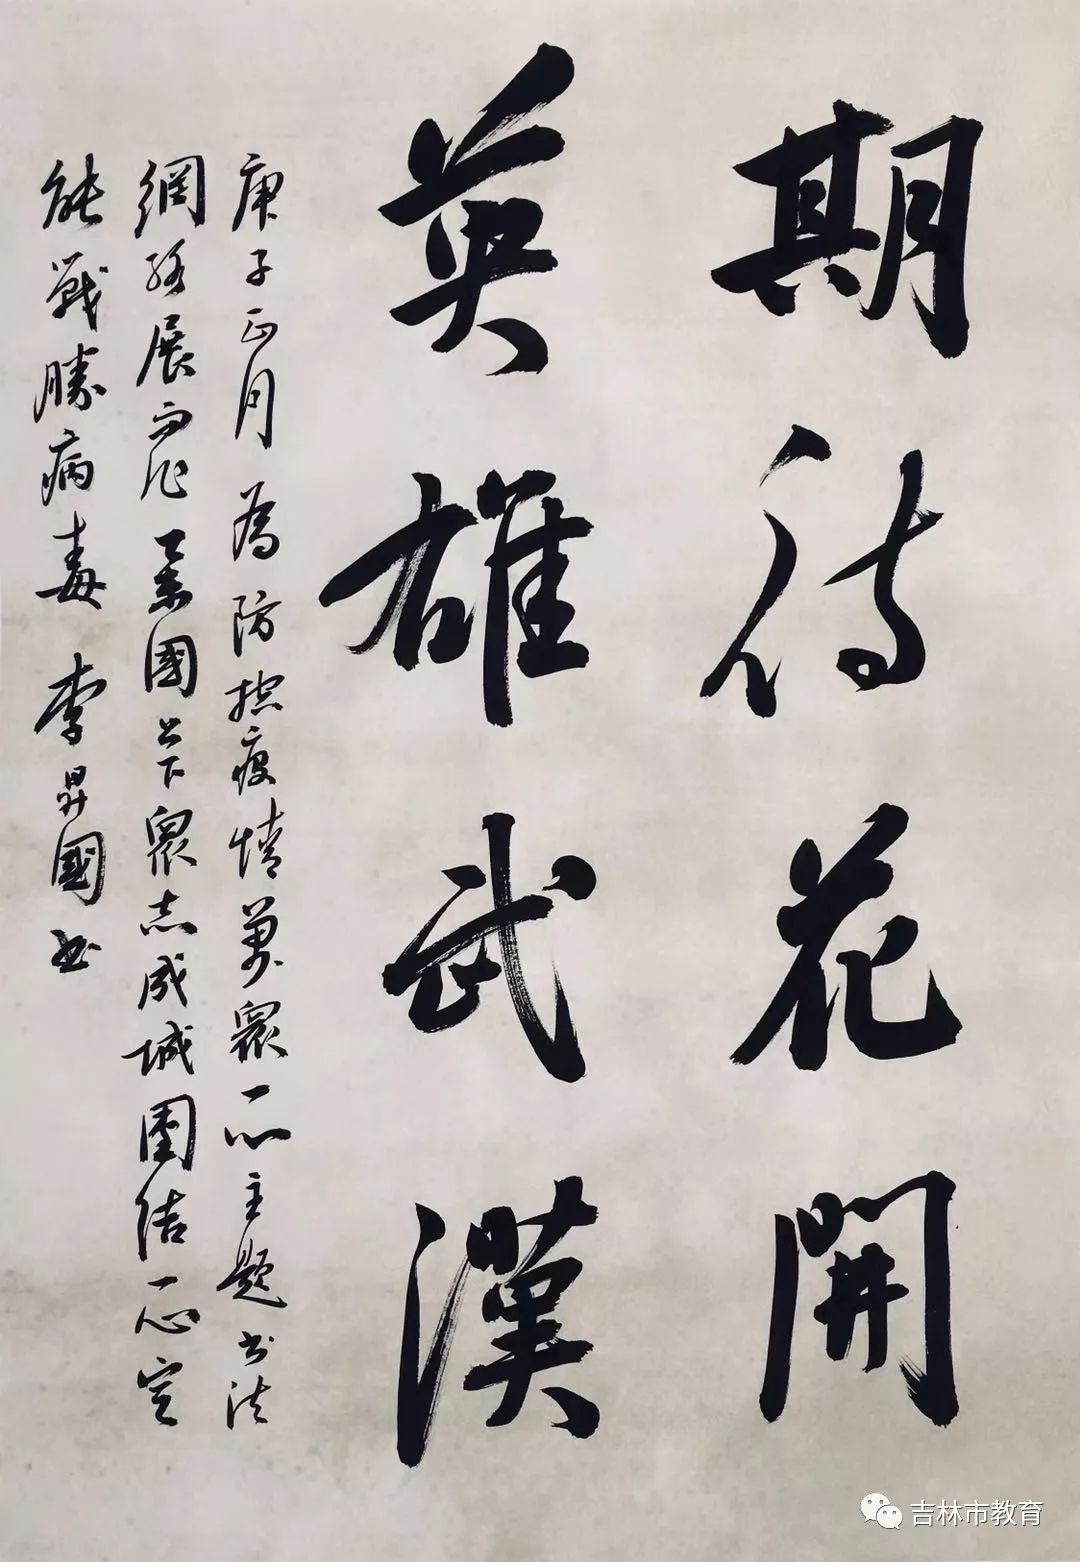 期待花開
英雄武漢
庚子正月為防控疫情萬眾一心主題书法
網絡展而作國上下眾志成城團结一心定
能戰勝病毒 李昇國书
吉林市教育